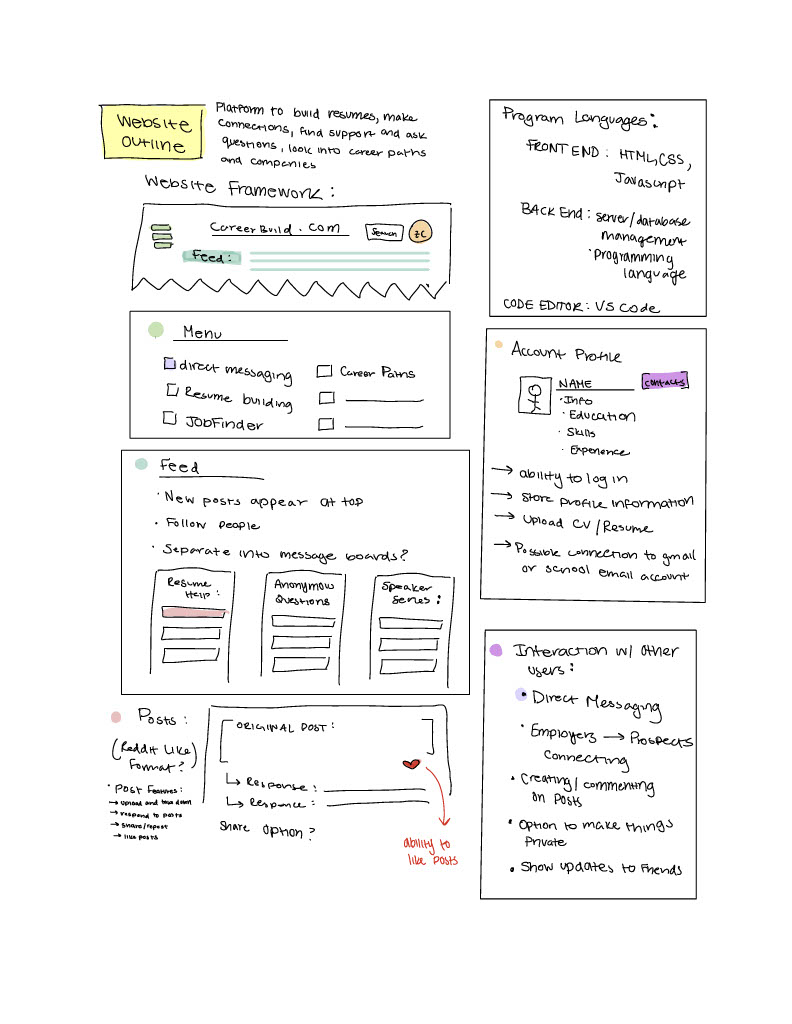 Website
Outline
Platform to build resumes, make
connections, find support and ask
questions, look into career paths
and companies
Website Framework:
CareerBuild.com
Search
ZC
Feed:
Menu
direct messaging
Resume building
JobFinder
Career Paths
Feed
· New posts appear at top
· Follow people
· Separate into message boards?
Resume
Help:
Anonymous
Questions
Speaker
Series:
Posts:
(Reddit Like
Format?)
· Post Features:
→ upload and take down
→ respond to posts
→ share/repost
→ like posts
ORIGINAL POST:
↳ Response:
↳ Responce:
Share option?
ability to
like posts
Program Languages:
FRONT END: HTML, CSS,
Javascript
BACK End: server/database
management
· Programming
language
CODE EDITOR: VS Code
Account Profile
NAME
contacts
· Info
· Education
· Skills
· Experience
→ ability to log in
→ Store profile information
→ Upload CV/Resume
→ Possible connection to gmail
or school email account
Interaction w/ other
users:
• Direct Messaging
· Employers → Prospects
connecting
• Creating/commenting
on posts
• Option to make things
Private
• Show updates to friends